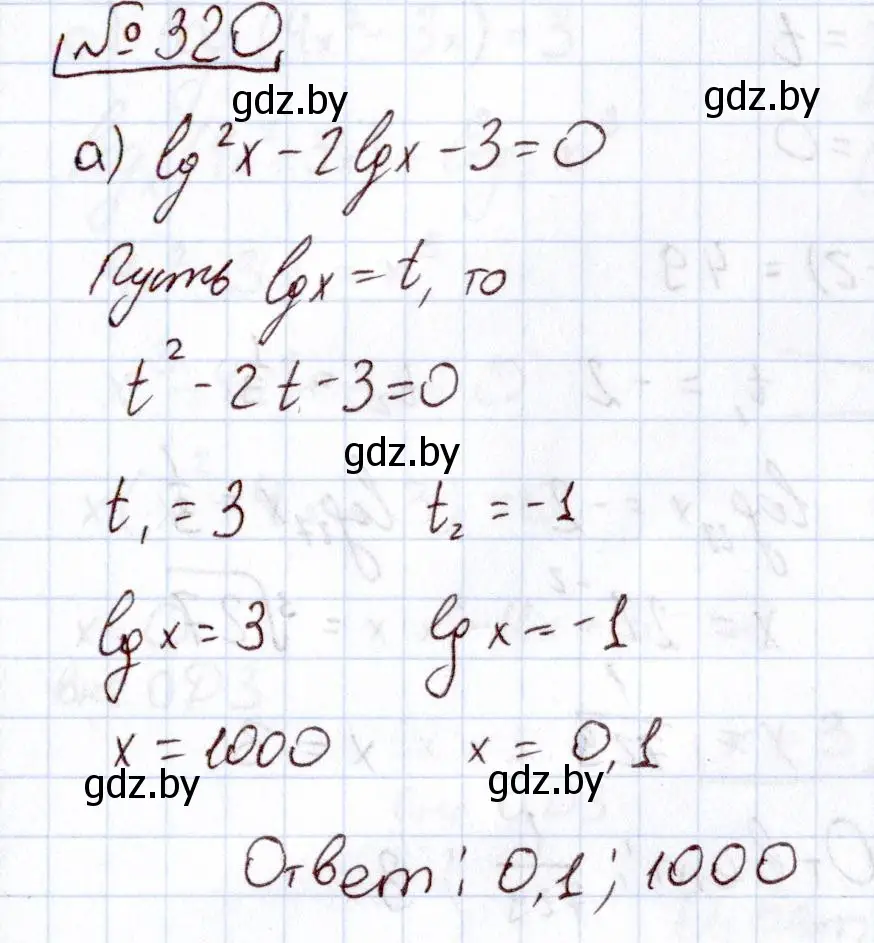 №320
gdz.by
gdz.by
а) lg²x - 2 lgx - 3 = 0
Пусть lgx = t, то
t² - 2t - 3 = 0
gdz.by
t₁ = 3 t₂ = -1
lg x = 3 lg x = -1
x = 1000 x = 0,1
gdz.by
gdz.by
Ответ: 0,1; 1000